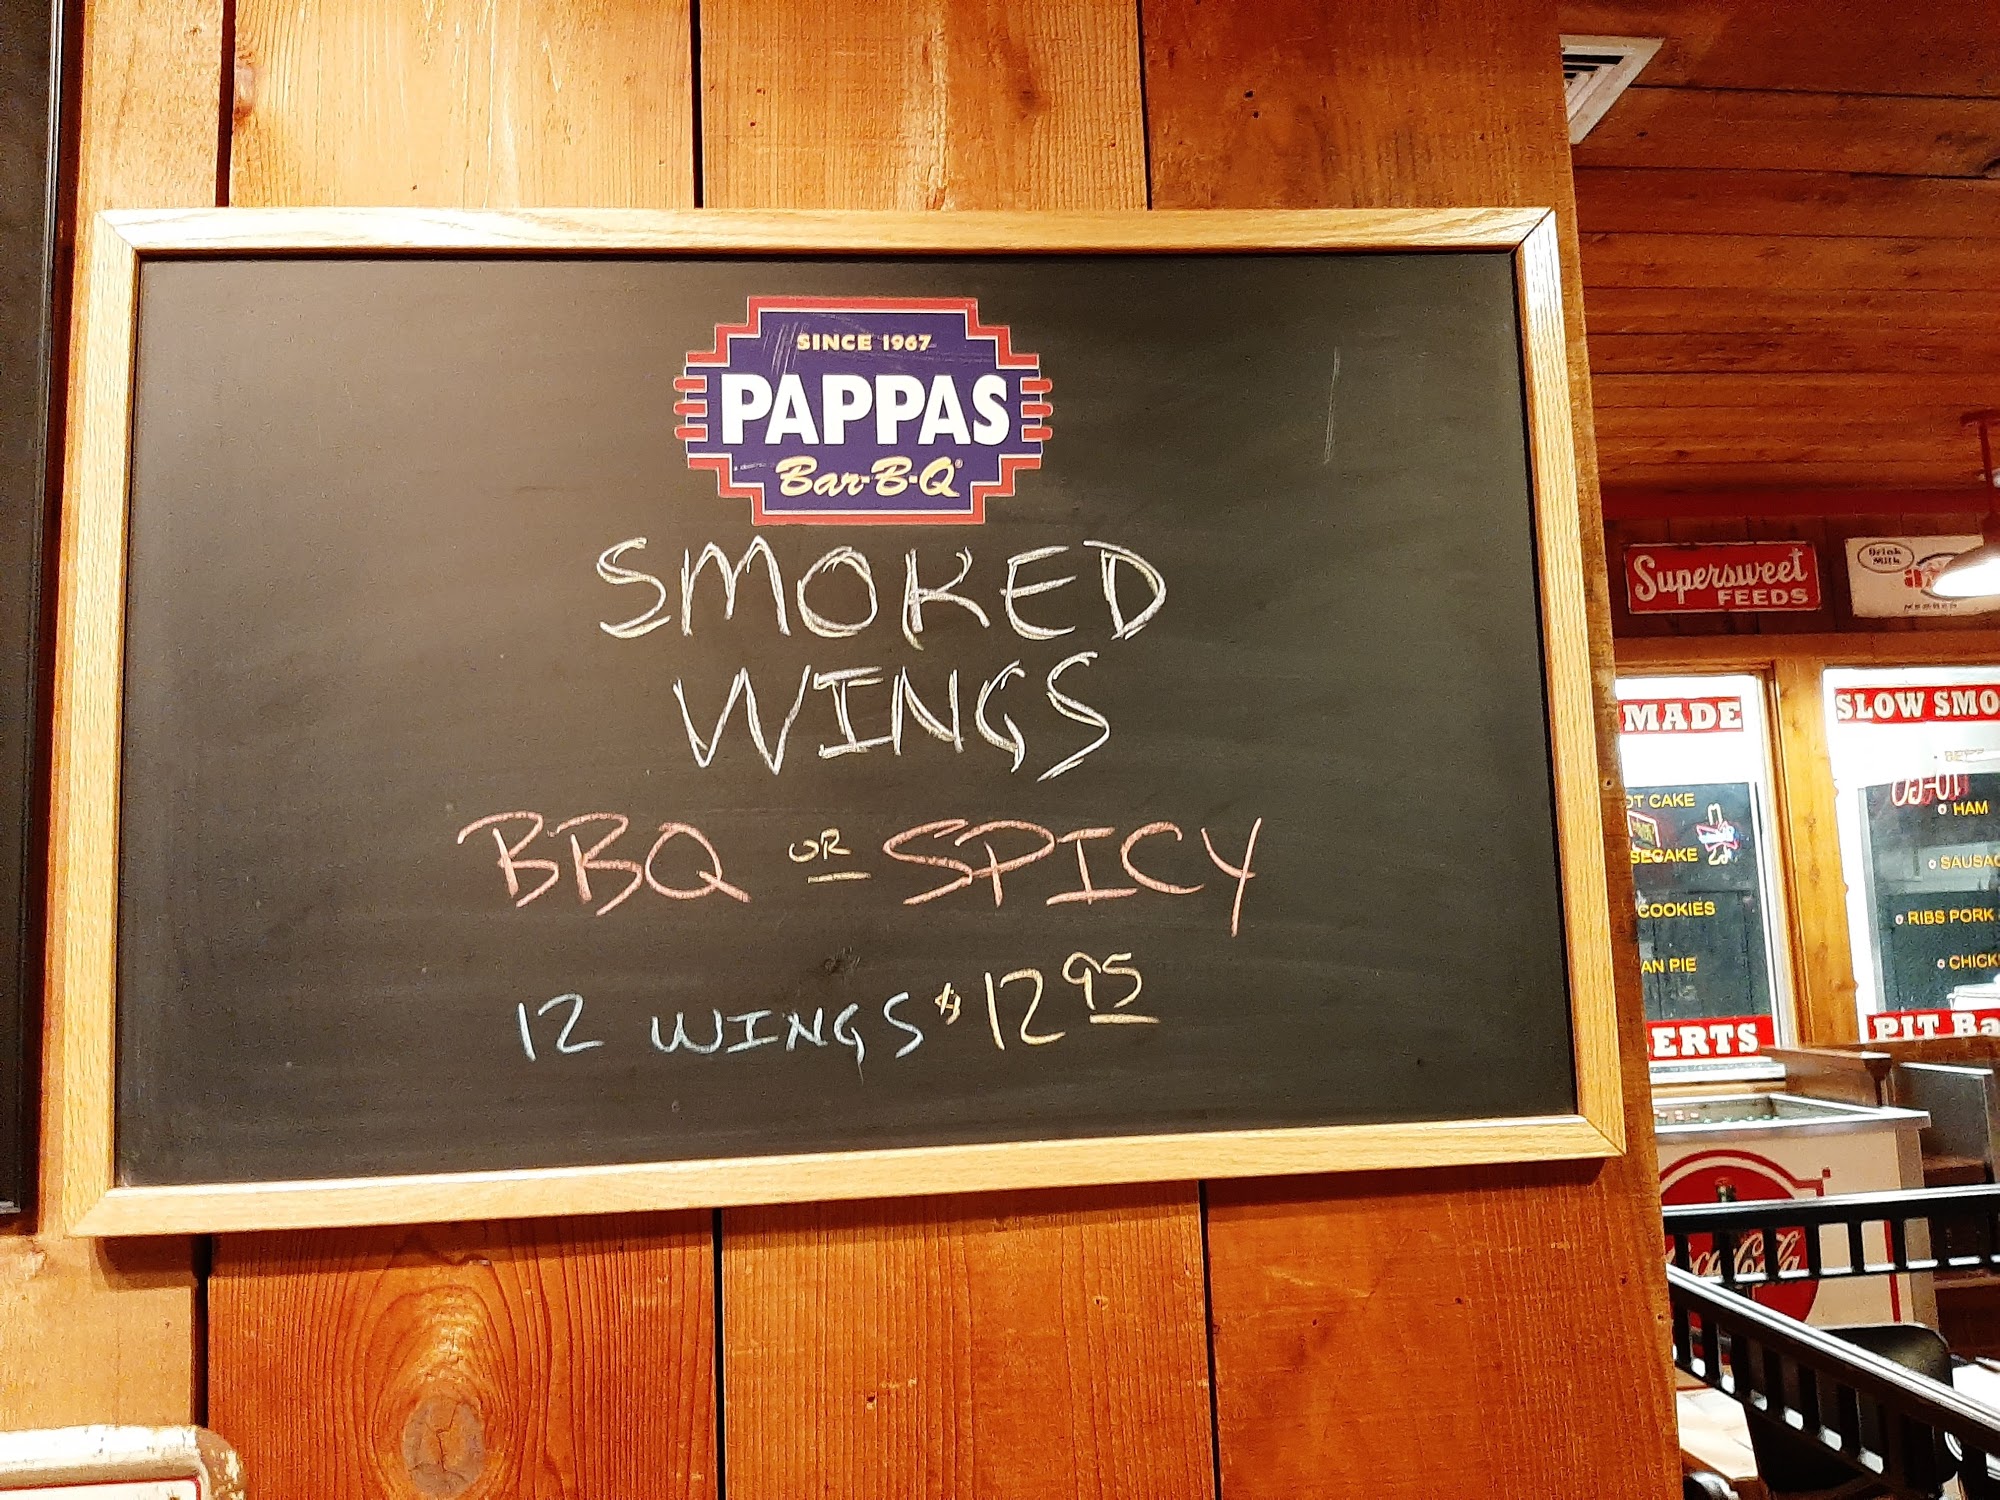 SINCE 1967
PAPPAS
Bar-B-Q®
SMOKED
WINGS
BBQ OR SPICY
12 WINGS $12 95
Supersweet
FEEDS
Drink
Milk
MADE
OT CAKE
SECAKE
COOKIES
AN PIE
ERTS
SLOW SMO
HAM
SAUSAG
RIBS PORK
CHICK
PIT Ba
Coca-Cola